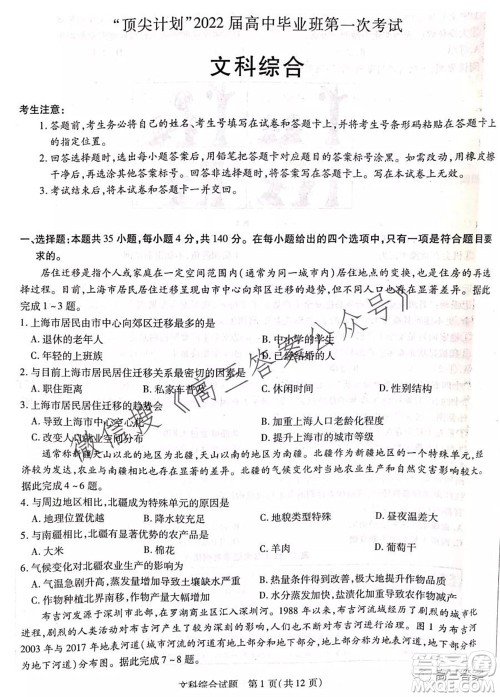 “顶尖计划”2022届高中毕业班第一次考试
文科综合
考生注意：
1. 答题前，考生务必将自己的姓名、考生号填写在试卷和答题卡上，并将考生号条形码粘贴在答题卡上
的指定位置。
2. 回答选择题时，选出每小题答案后，用铅笔把答题卡对应题目的答案标号涂黑。如需改动，用橡皮擦
干净后，再选涂其他答案标号。回答非选择题时，将答案写在答题卡上。写在本试卷上无效。
3. 考试结束后，将本试卷和答题卡一并交回。
一、选择题：本题共35小题，每小题4分，共140分。在每小题给出的四个选项中，只有一项是符合题目要
求的。
居住迁移是指个人或家庭在一定空间范围内（通常为同一城市内）居住地点的变换，也是居民居住需
求变化的反映。目前，上海市居民居住迁移者内部存在显著差异，且与周边城市相比也存在显著差异。据此
完成1～3题。
1. 上海市居民由市中心向郊区迁移最多的是
A. 退休的老年人
B. 中小学的学生
C. 年轻的上班族
D. 已经结婚的人
2. 与目前上海市居民居住迁移关系最密切的因素是
A. 职住距离
B. 私家车普及
C. 休闲时间
D. 性别结构
3. 上海市居民居住迁移的趋势会
A. 导致上海市中心空心化
B. 加重上海人口老龄化问题
C. 改变人口就业空间分布
D. 提升上海市的城市等级
通常称新疆天山以北的地区为北疆，天山以南的地区为南疆。与周边地区相比，北疆是一个特殊的单
元，其气候、农业与南疆之间存在显著的差异。近些年来，北疆的气候变化对当地农业生产和生态影响显著。
据此完成4～6题。
4. 与周边地区相比，北疆成为特殊单元的原因是
A. 地理位置优越
B. 降水较充足
C. 地貌类型特殊
D. 昼夜温差大
5. 与南疆相比，北疆有显著优势的农产品是
A. 大米
B. 棉花
C. 羊肉
D. 葡萄干
6. 气候变化对北疆农业生产和生态的影响是
A. 气温急剧升高，蒸发增加导致土地退化
B. 农作物生长期延长，冻害天气减少
C. 水资源增加，盐渍化面积持续增加
D. 灌溉水源增加，沙漠变为高产良田
布吉河发源于深圳市北部，在罗湖商业区汇入深圳河。1988年以来，布吉河流域经历了快速的城市化
进程，对布吉河产生了较为显著的影响，目前布吉河有地上部分和地下部分（城市下面的河流）。图1为
2003年与2017年地表河流（城市流域的河流有地上部分和地下部分，地表河流即河流的地上部分）分布
图。据此完成7～8题。
文科综合试题 第1页（共12页）
微信搜《高三答案公众号》
高三答案